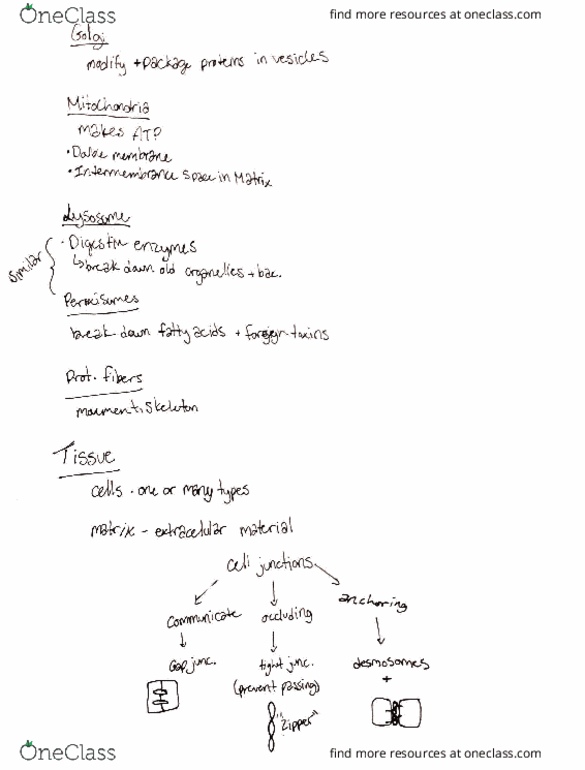 OneClass
find more resources at oneclass.com
Golgi
modify + package proteins in vesicles
Mitochondria
makes ATP
• Double membrane
• Intermembrance space in Matrix
Lysosome
similar
• Digestive enzymes
↳ break down old organelles + bac.
Permisomes
break down fatty acids + foreign toxins
Prot. fibers
movement, skeleton
Tissue
cells - one or many types
matrix - extracelular material
cell junctions
communicate
occluding
anchoring
Gap junc.
tight junc.
desmosomes
(prevent passing)
+
"Zipper"
OneClass
find more resources at oneclass.com